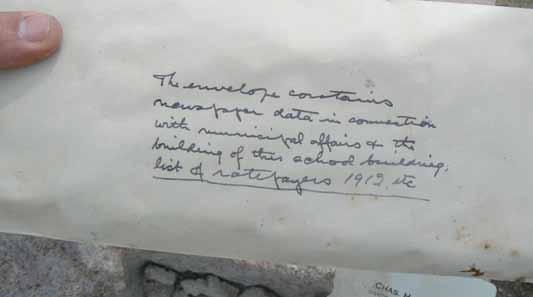 The envelope contains
newspaper data in connection
with municipal affairs & the
building of this school building,
list of ratepayers 1912, etc
CHAS.